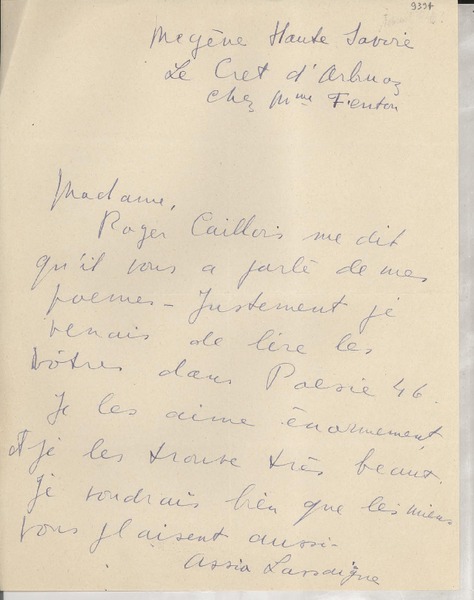 9394
Megène Haute Savoie
Le Cret d'Arbroz
chez Mme Fenton
Madame,
Roger Caillois me dit
qu'il vous a parlé de mes
poemes - Justement je
venais de lire les
vôtres dans Poesie 46.
Je les aime énormement,
et je les trouve très beaux.
Je voudrais bien que les miens
vous plaisent aussi -
Assia Lassaigne